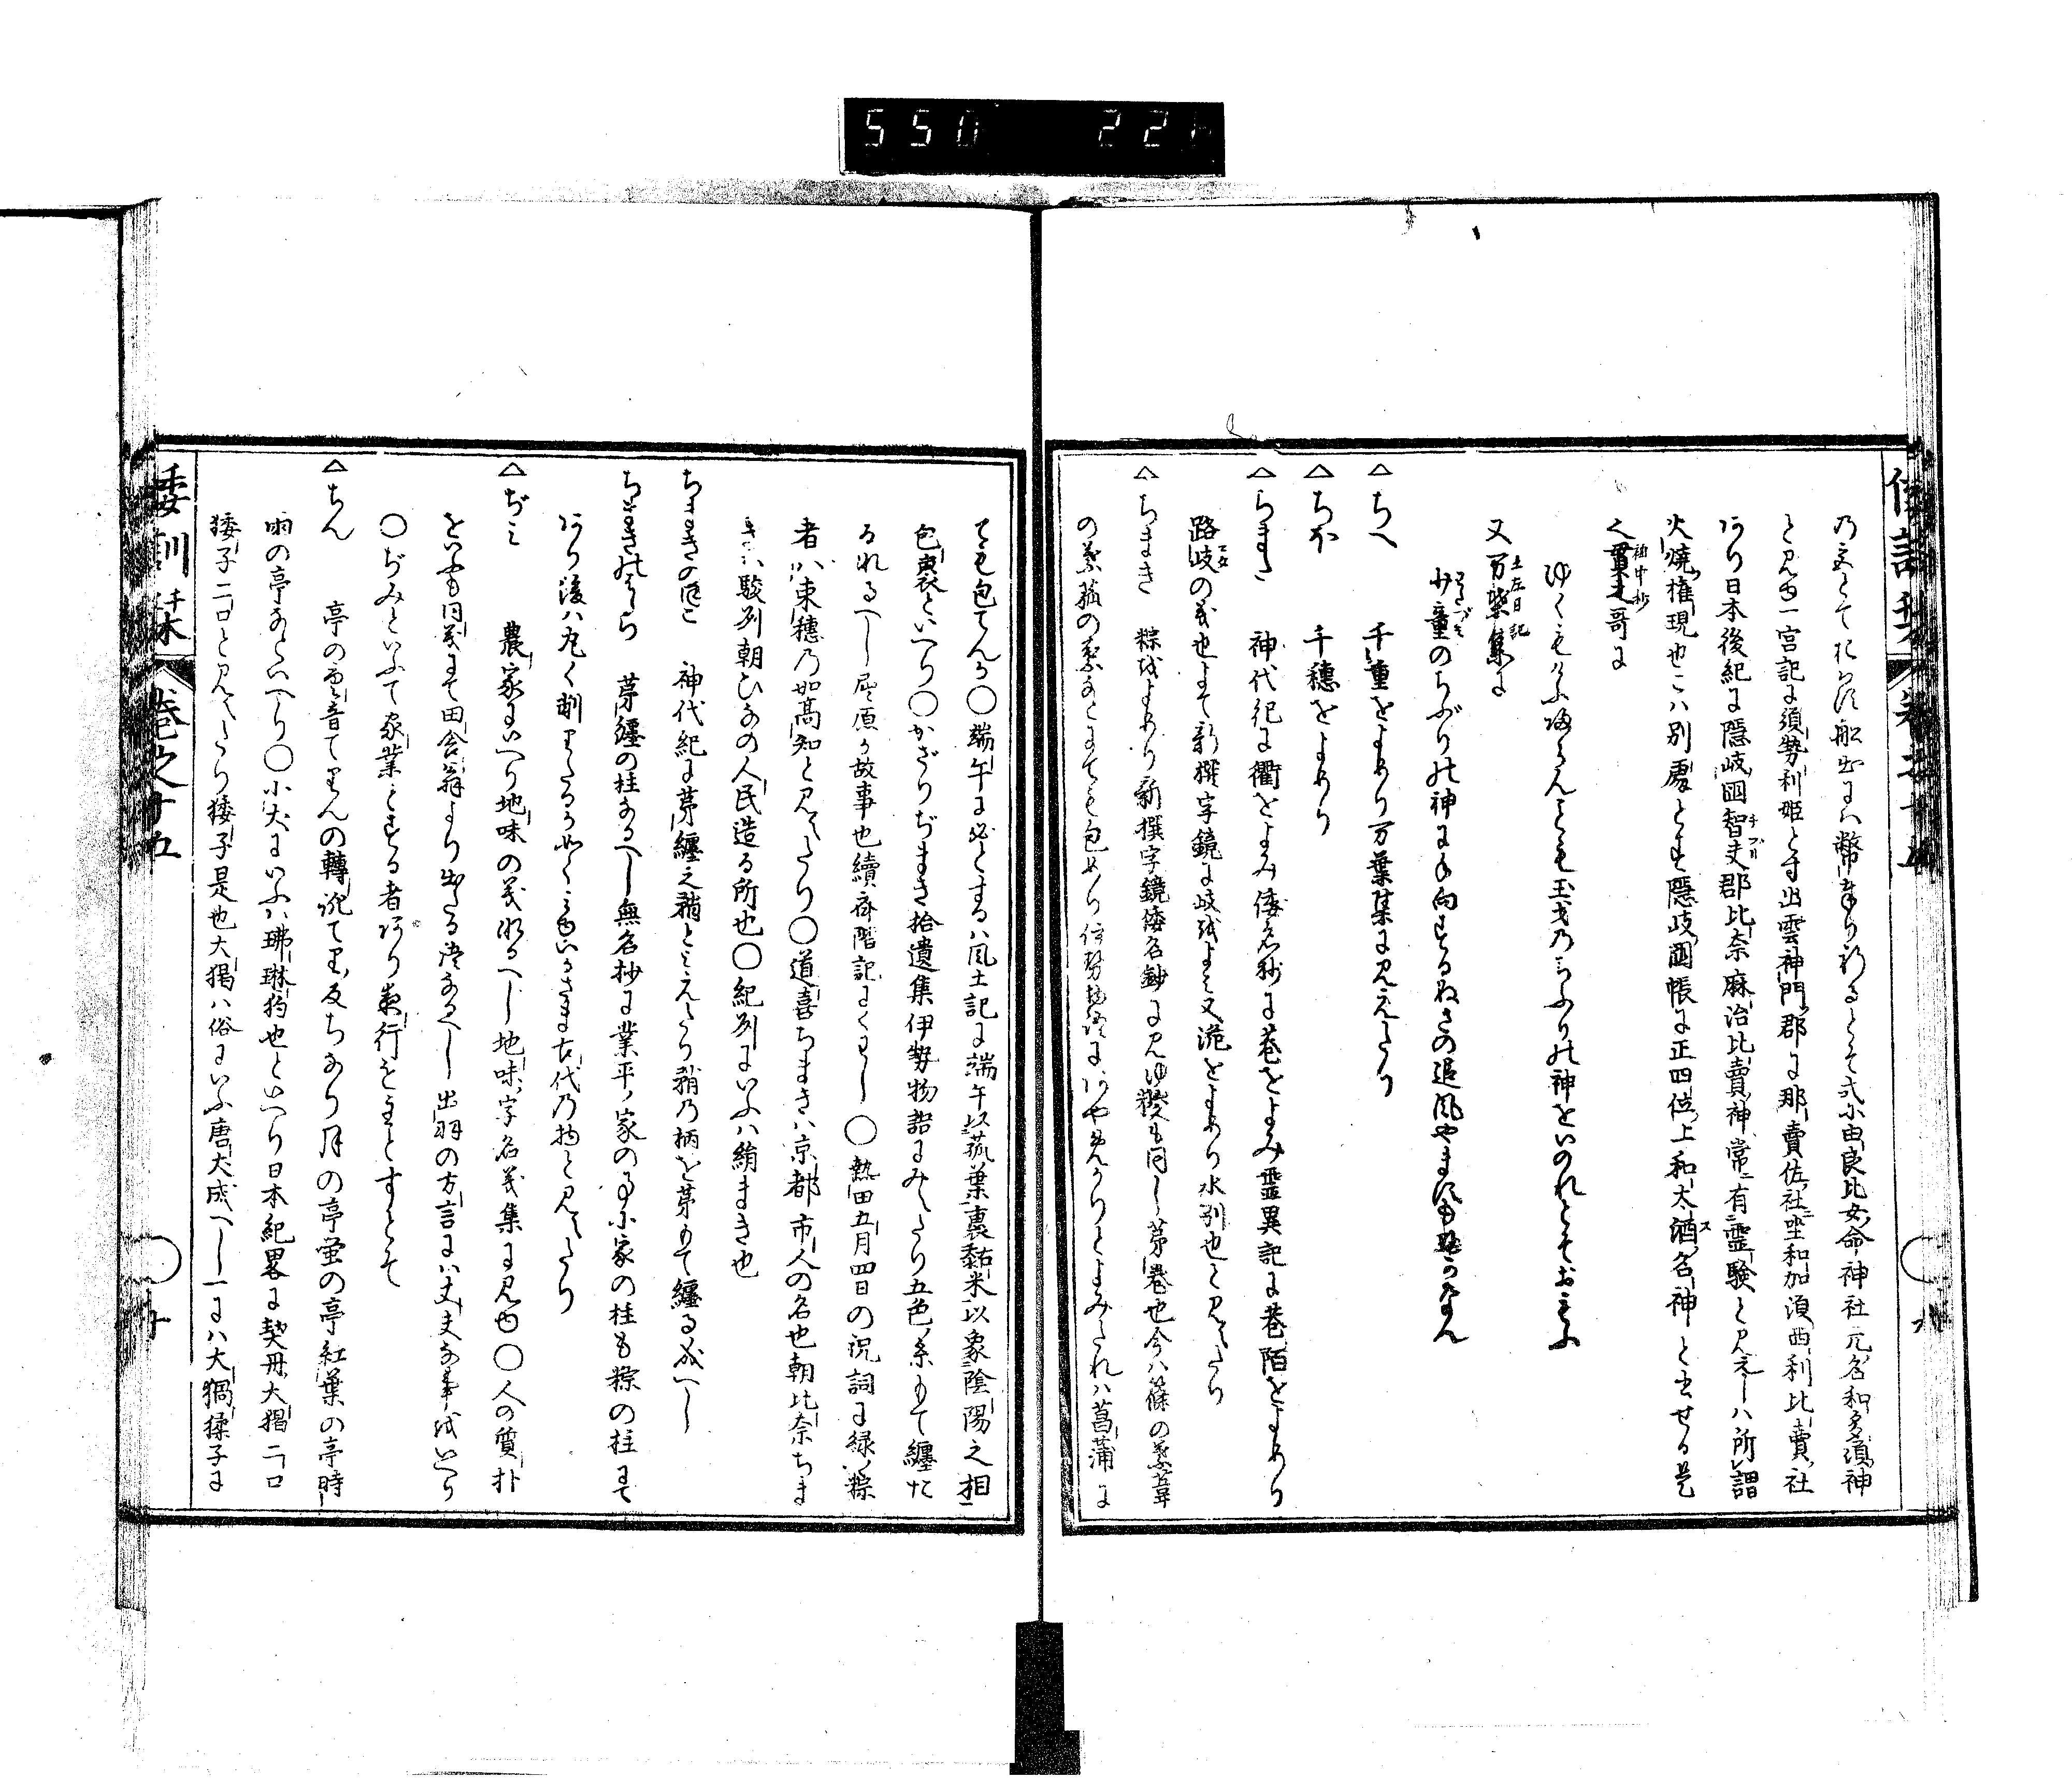 550 221
乃玄とて〳〵船出には幣奉り祈るとそ式に由良比女命神社元名和多須神
と見ゆ一宮記に須勢利姫と す出雲神門郡に那賣佐社ニ坐和加須西利比賣社
あり日本後紀に隠岐國智夫郡比奈麻治比賣神常ニ有ニ霊験と見えしハ所謂
火燒権現也こハ別處とす隠岐國帳に正四位上和太酒名神と書せる是
也貫之哥に
袖中抄
ゆくもけふ帰らんとも玉ほこのちふりの神をいのれとそおもふ
又万葉集に
土左日記
少童のちぶりの神に手向するぬさの追風やます吹なん
△ちへ 千重をよめり万葉集に見えたり
△ちほ 千穂をよめり
△ちまた 神代紀に衢をよみ倭名抄に巷をよみ霊異記に巷陌をよめり
路岐の義也よて新撰字鏡に岐をよミ又派をよめり水別也と見えたり
△ちまき 粽をよめり新撰字鏡倭名鈔に見ゆ糉も同し茅巻也今ハ篠の葉葦
の葉菰の葉なとにても包めり伊勢物語にあやめかりとよみたれハ菖蒲に
ても包てんか〇端午に必とするハ風土記に端午以菰葉裏黏米以象陰陽之相
包裹といへり〇かざりぢまき拾遺集伊勢物語にみえたり五色ノ糸もて纏た
るなるへし屈原か故事也續齊階記にくはし〇熱田五月四日の祝詞に緑粽
者ハ東穗乃如高知と見えたり〇道喜ちまきハ京都市人の名也朝比奈ちま
きハ駿州朝ひなの人民造る所也〇紀州にいふハ絹まき也
ちまきのほこ 神代紀に茅纏之矟とみえたり矟乃柄を茅もて纏る成へし
ちまきはしら 茅纏の柱なるへし無名抄に業平ノ家の事に家の柱も粽の柱にて
あり後ハ丸く削りたるか如くにもいかさま古代乃物と見えたり
△ぢミ 農家にいへり地味の義なるへし地味字名義集に見ゆ〇人の質朴
をいふも同義にて田舎翁より出たる語なるへし出羽の方言にハ丈夫なる事をいへり
〇ぢみといふて家業とする者あり素行を主とすとそ
△ちん 亭の唐音てりんの轉訛てり反ちなり月の亭蛍の亭紅葉の亭時
雨の亭なといへり〇小犬にいふハ㹃㹵狗也といへり日本紀畧に契丹大猲二口
㹻子二口と見えたり㹻子是也大猲ハ俗にいふ唐犬成へし一にハ大猧猱子に
倭訓栞 卷之十五